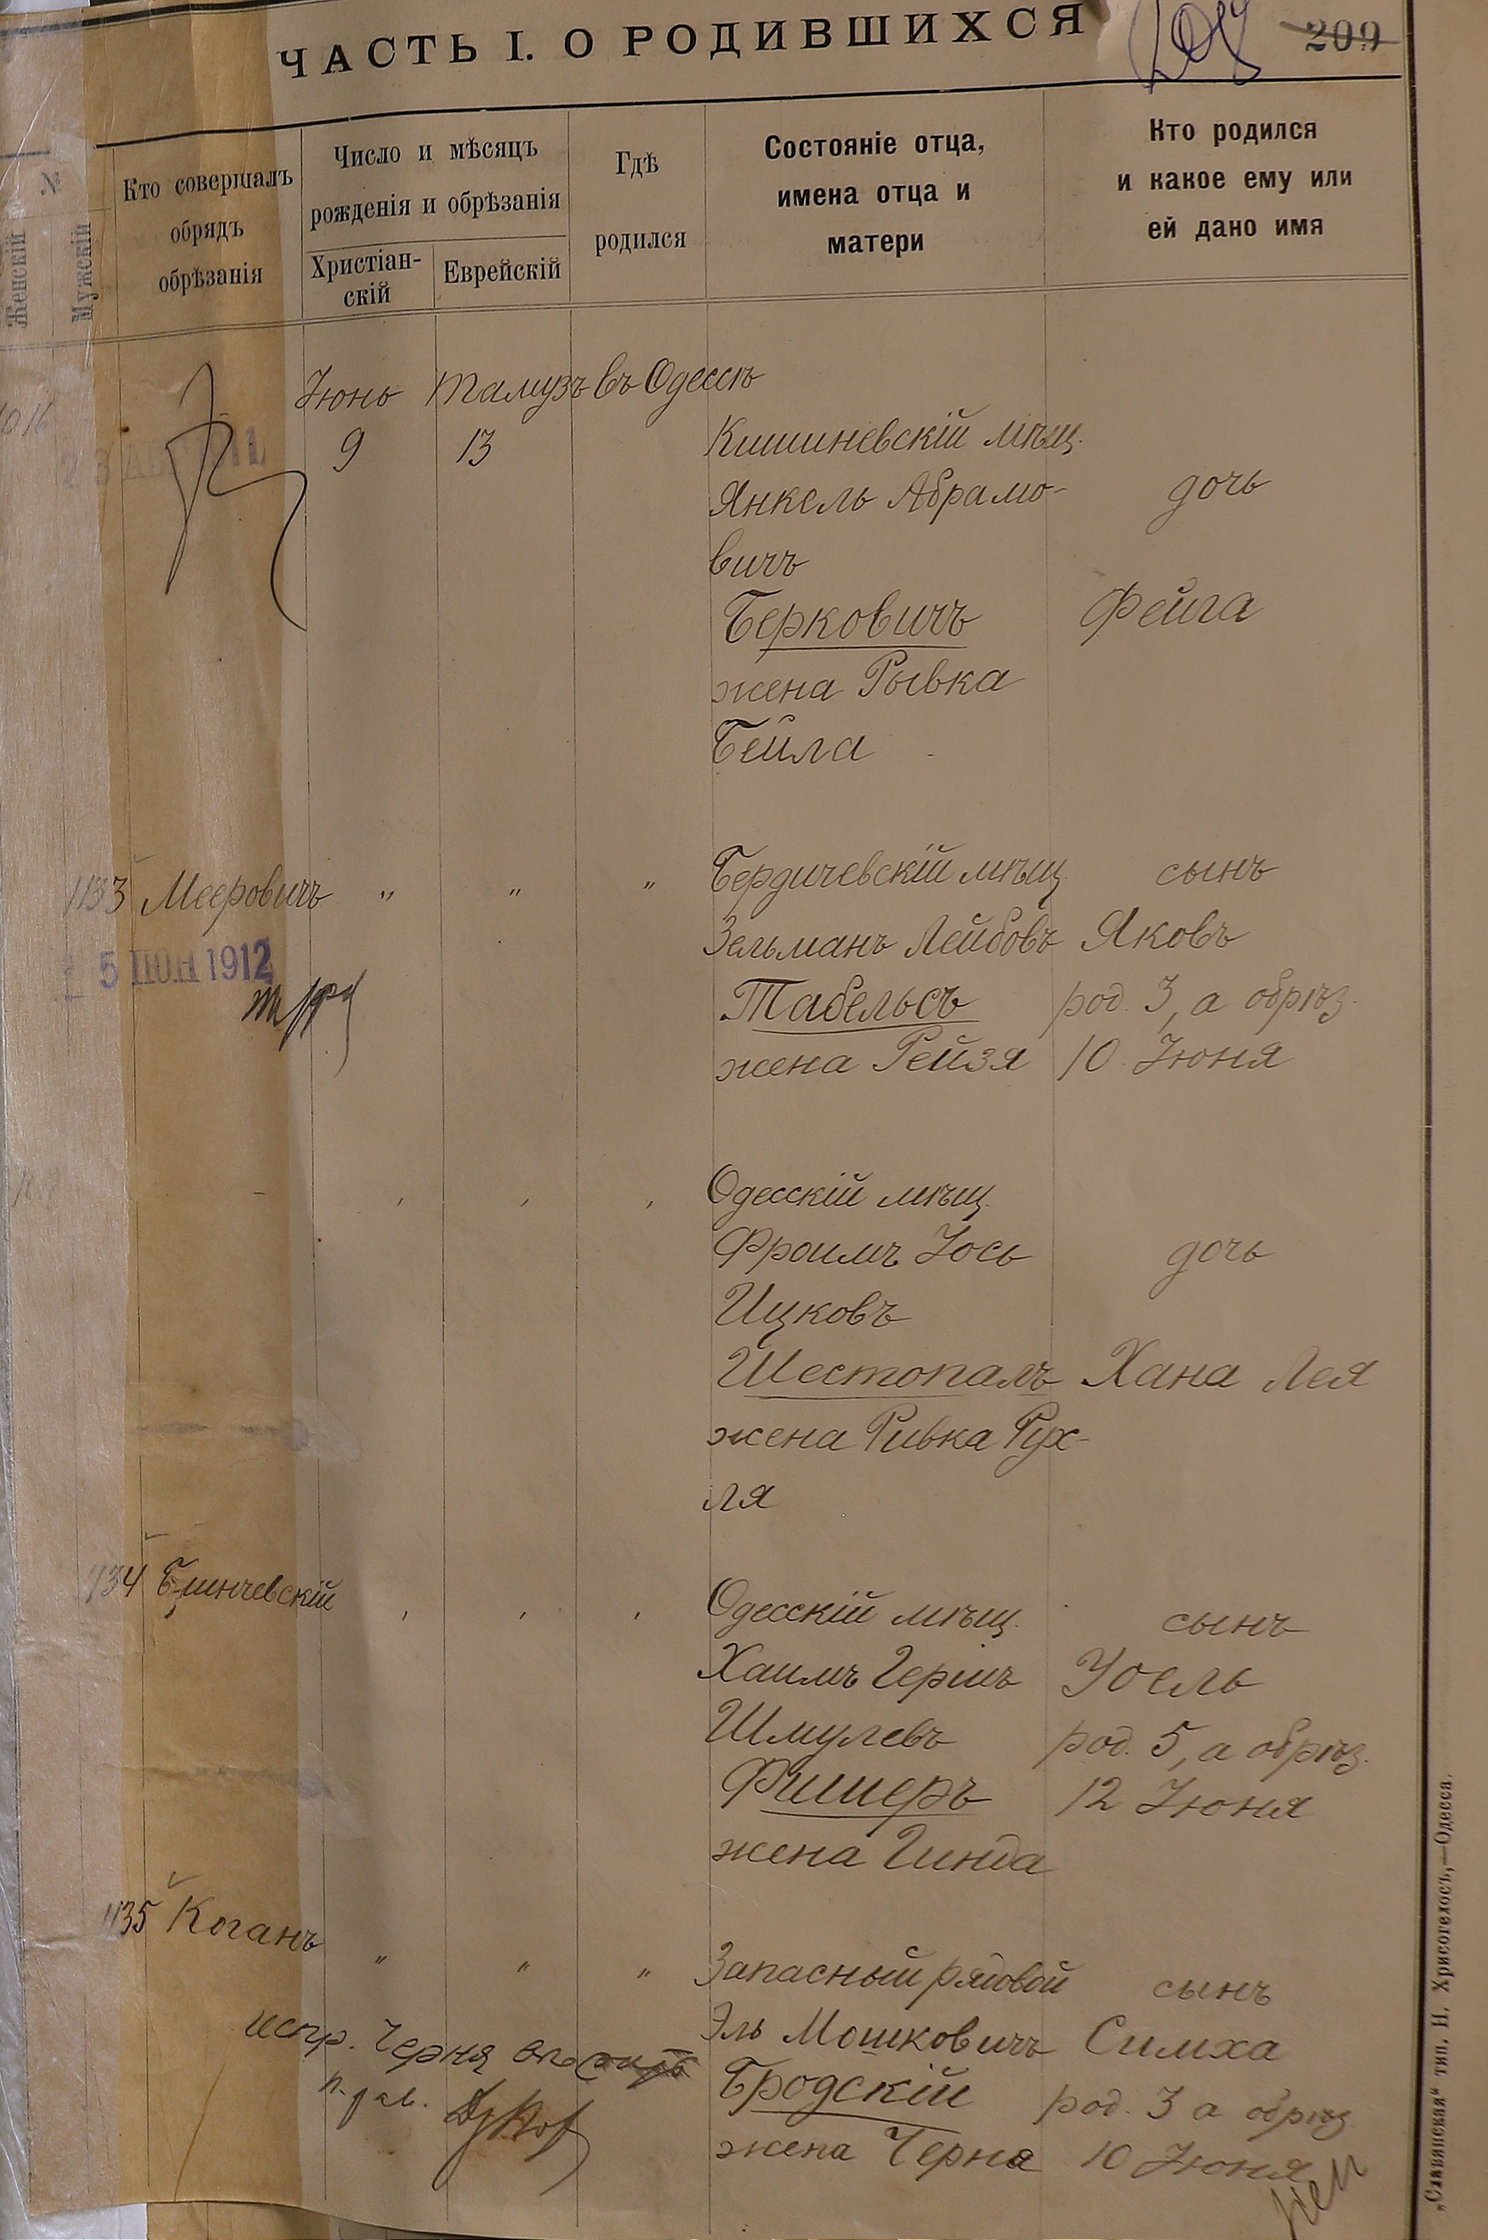 ЧАСТЬ I. О РОДИВШИХСЯ
209
№
Женскій
Мужскій
Кто совершалъ
обрядъ
обрѣзанія
Число и мѣсяцъ
рожденія и обрѣзанія
Христіан-
скій
Еврейскій
Гдѣ
родился
Состояніе отца,
имена отца и
матери
Кто родился
и какое ему или
ей дано имя
Іюнь Тамузъ въ Одессѣ
9 13 Кишиневскій мѣщ.
Янкель Абрамо- дочь
вичъ
Берковичъ Фейга
жена Рывка
Бейла
1133 Мееровичъ " " " Бердичевскій мѣщ. сынъ
Зельманъ Лейбовъ Яковъ
5 ІЮН 1912
Табельсъ род. 3, а обрѣз.
жена Рейзя 10 Іюня
Одесскій мѣщ.
Фроимъ Іось дочь
Ицковъ
Шестопалъ Хана Лея
жена Ривка Рух-
ля
1134 Одесскій мѣщ. сынъ
Хаимъ Гершъ Іоель
Шмулевъ род. 5, а обрѣз.
Фишеръ 12 Іюня
жена Гинда
1135 Коганъ " " " Запасный рядовой сынъ
Эль Мошковичъ Симха
испр. Черня
Бродскій род. 3 а обрѣз.
жена Черня 10 Іюня
„Славянская“ тип. Н. Хрисогелосъ,—Одесса.